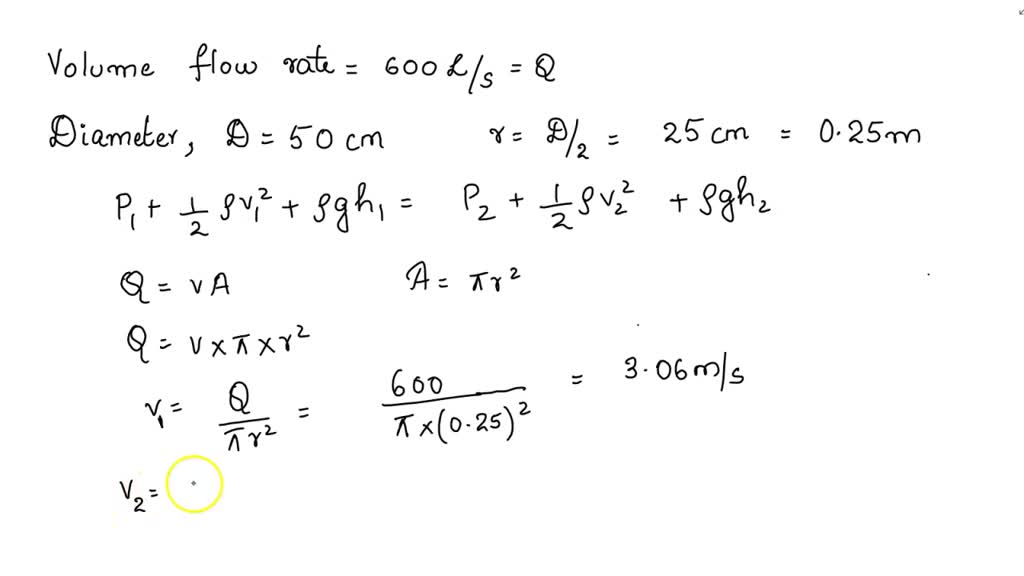 Volume flow rate = 600 L/s = Q
Diameter, D = 50 cm r = D/2 = 25 cm = 0.25m
P₁ + 1/2 ρv₁² + ρgh₁ = P₂ + 1/2 ρv₂² + ρgh₂
Q = vA A = πr²
Q = v×π×r²
v₁ = Q/πr² = 600/π×(0.25)² = 3.06 m/s
V₂ =